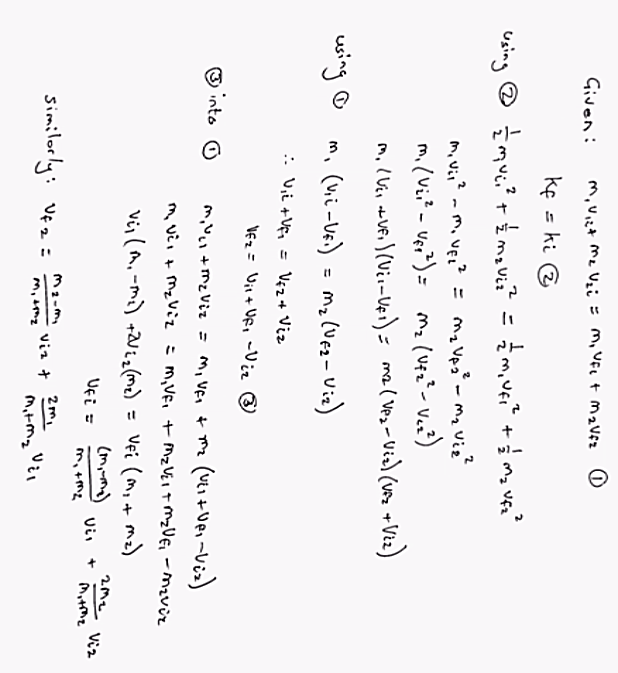 Given: m₁v₁ᵢ + m₂v₂ᵢ = m₁vf₁ + m₂vf₂ ①
Kf = ki ②
using ② ½m₁vᵢ₁² + ½m₂vᵢ₂² = ½m₁vf₁² + ½m₂vf₂²
m₁vᵢ₁² - m₁vf₁² = m₂vf₂² - m₂vᵢ₂²
m₁(vᵢ₁² - vf₁²) = m₂(vf₂² - vᵢ₂²)
m₁(vᵢ₁ + vf₁)(vᵢ₁ - vf₁) = m₂(vf₂ - vᵢ₂)(vf₂ + vᵢ₂)
using ① m₁(v₁ᵢ - vf₁) = m₂(vf₂ - vᵢ₂)
∴ v₁ᵢ + vf₁ = vf₂ + vᵢ₂
vf₂ = vᵢ₁ + vf₁ - vᵢ₂ ③
③ into ① m₁vᵢ₁ + m₂vᵢ₂ = m₁vf₁ + m₂(vᵢ₁ + vf₁ - vᵢ₂)
m₁vᵢ₁ + m₂vᵢ₂ = m₁vf₁ + m₂vᵢ₁ + m₂vf₁ - m₂vᵢ₂
vᵢ₁(m₁ - m₂) + 2vᵢ₂(m₂) = vfᵢ(m₁ + m₂)
vfᵢ = (m₁-m₂)/(m₁+m₂) vᵢ₁ + 2m₂/(m₁+m₂) vᵢ₂
Similarly: vf₂ = (m₂-m₁)/(m₁+m₂) vᵢ₂ + 2m₁/(m₁+m₂) vᵢ₁